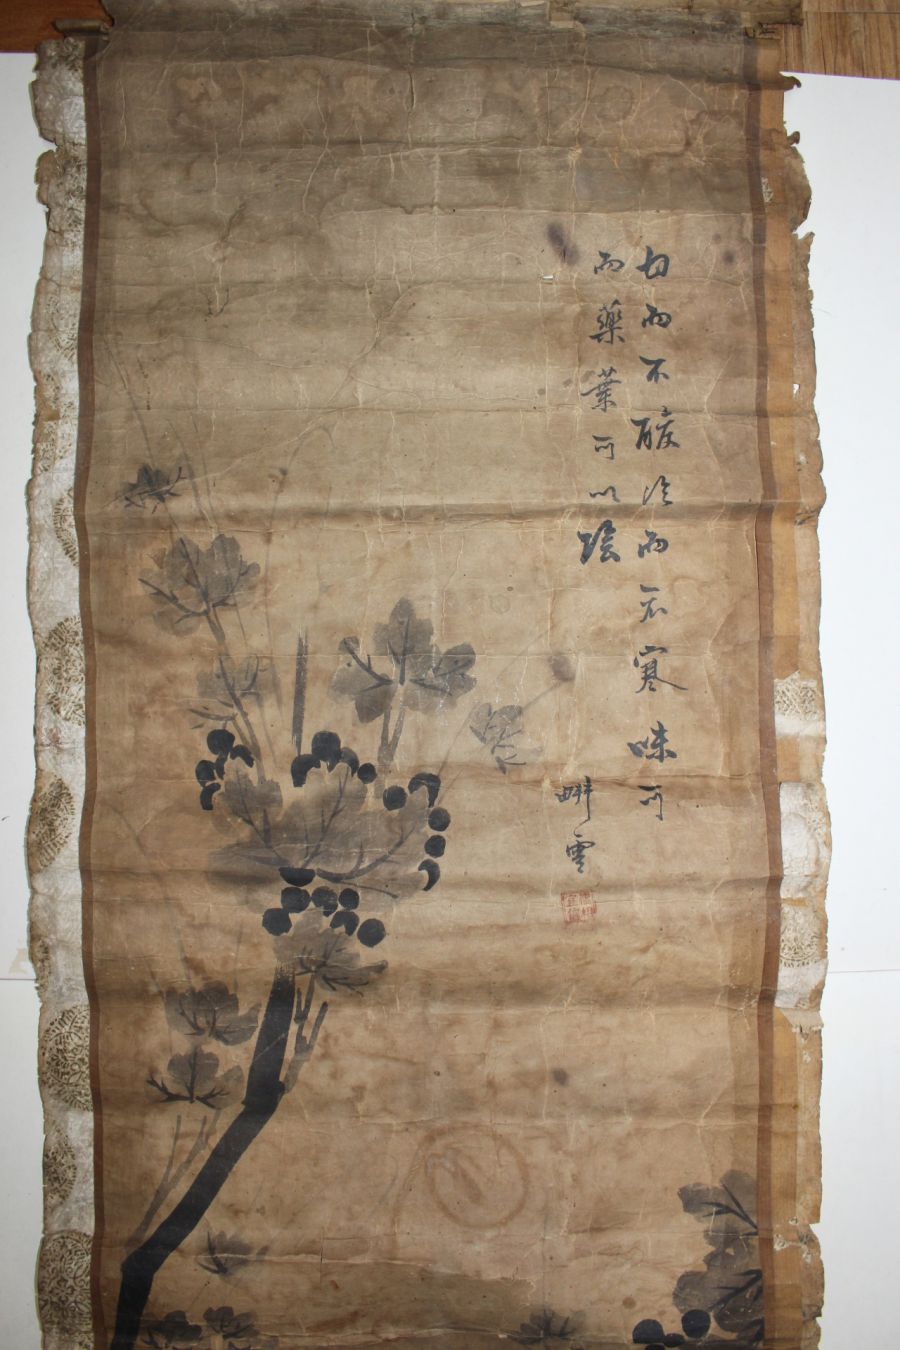 甘而不酸冷而不寒味可
而藥葉可以陰
畊雲